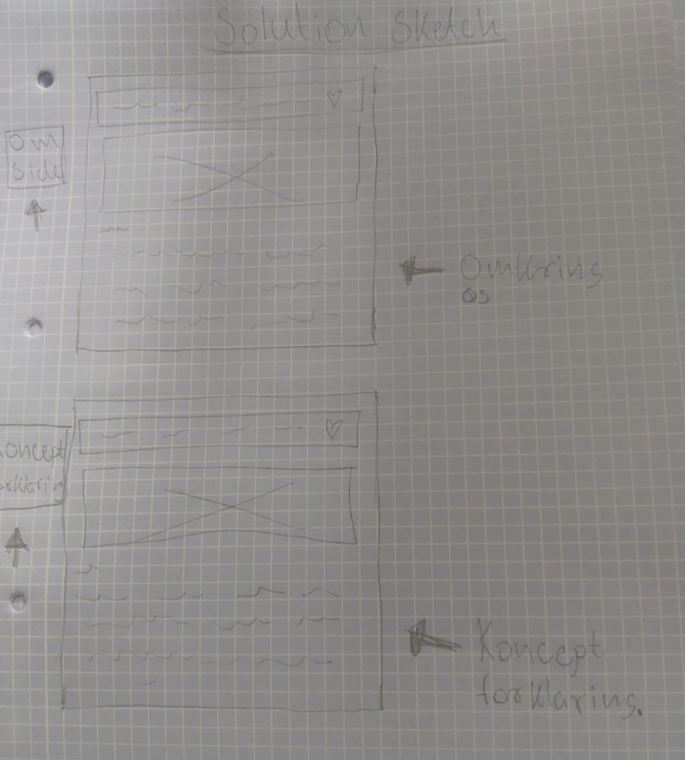 Solution Sketch
Om
Side
Omkring
os
Koncept
forklaring
Koncept
forklaring.